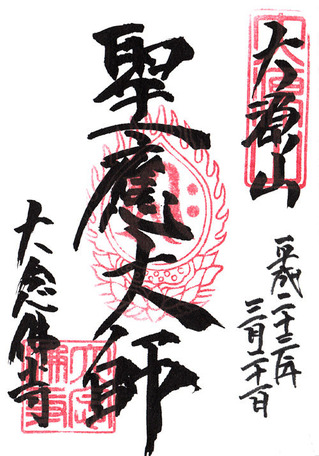 大源山
平成二十三年
三月二十一日
聖應大師
大念佛寺